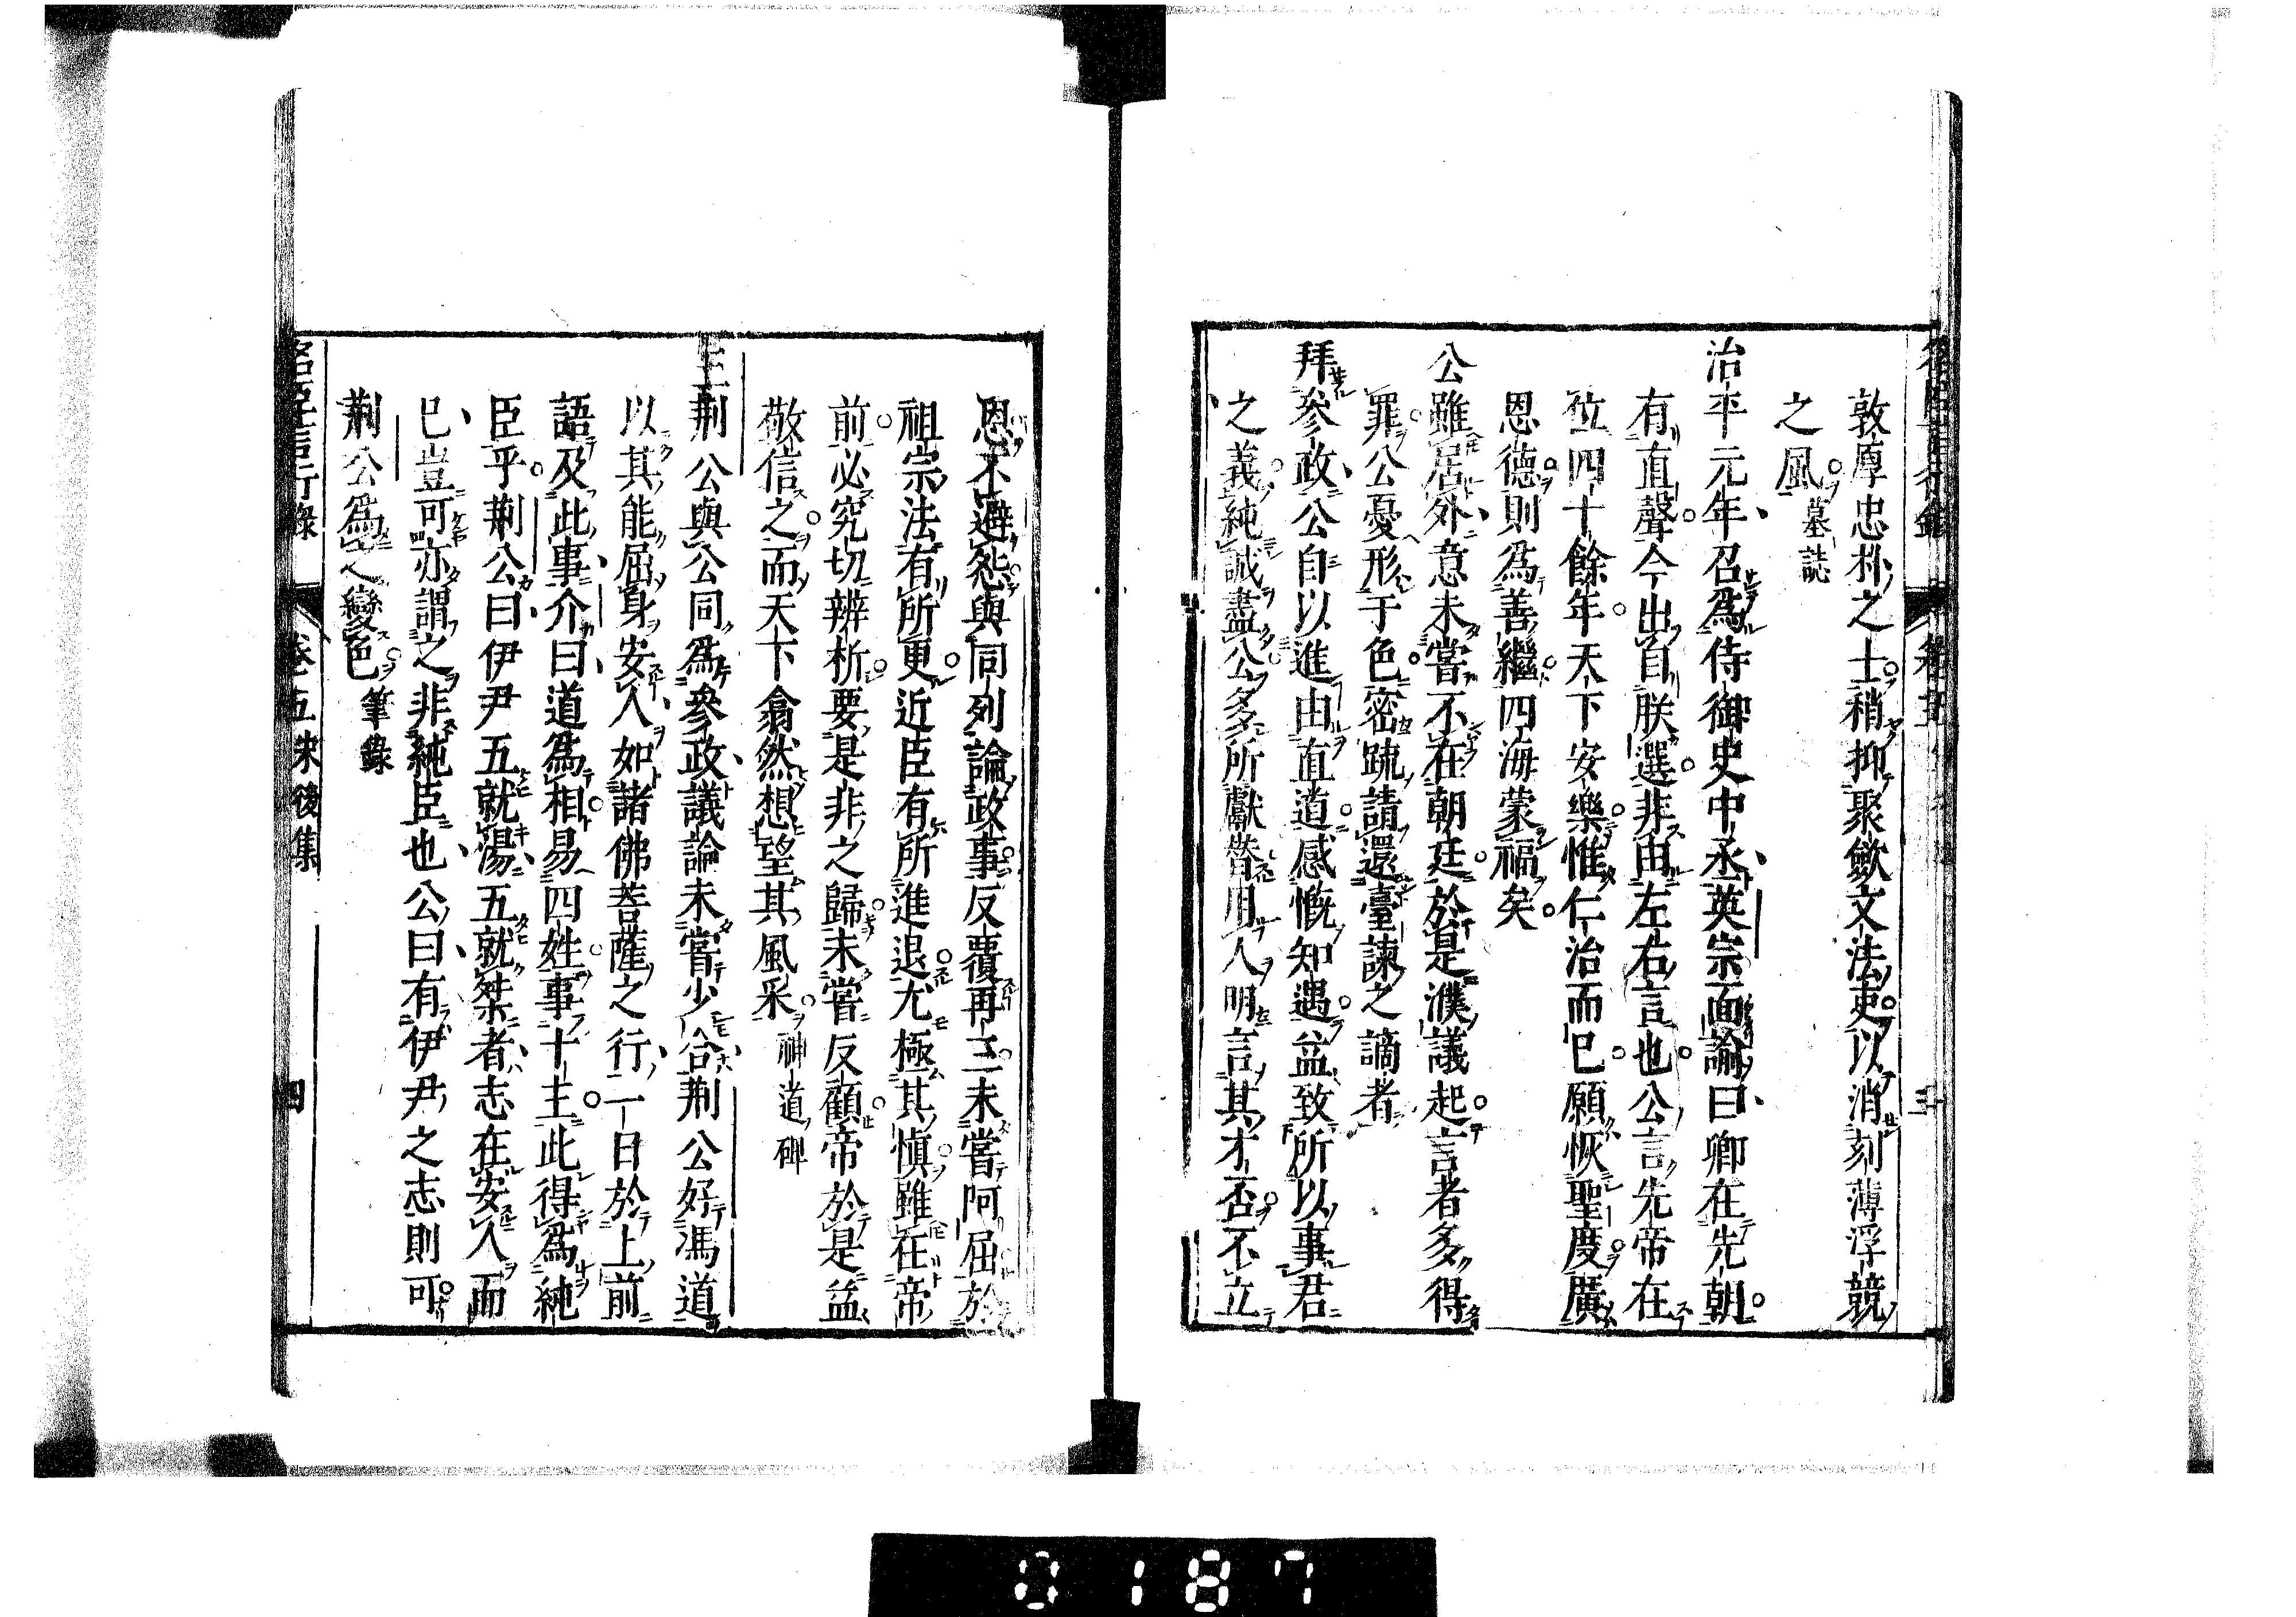 敦厚忠朴之士稍抑聚斂文法吏以消刻薄浮競
之風墓誌
治平元年召爲侍御史中丞英宗面諭曰卿在先朝
有直聲今出自朕選非由左右言也公言先帝在
位四十餘年天下安樂惟仁治而已願恢聖度廣
恩德則爲善繼四海蒙福矣
公雖居外意未嘗不在朝廷於是濮議起言者多得
罪公憂形于色密疏請還臺諫之謫者
拜參政公自以進由直道感慨知遇益致所以事君
之義純誠盡公多所獻替用人明言其才否不立
恩不避怨與同列論政事反覆再三未嘗阿屈於
祖宗法有所更近臣有所進退尤極其愼雖在帝
前必究切辨析要是非之歸未嘗反顧帝於是益
敬信之而天下翕然想望其風采神道碑
王荆公與公同爲參政議論未嘗少合荆公好馮道
以其能屈身安人如諸佛菩薩之行一日於上前
語及此事介曰道爲相易四姓事十主此得爲純
臣乎荆公曰伊尹五就湯五就桀者志在安人而
已豈可亦謂之非純臣也公曰有伊尹之志則可
荆公爲之變色筆錄
名臣言行錄 卷五宋後集 四
0187